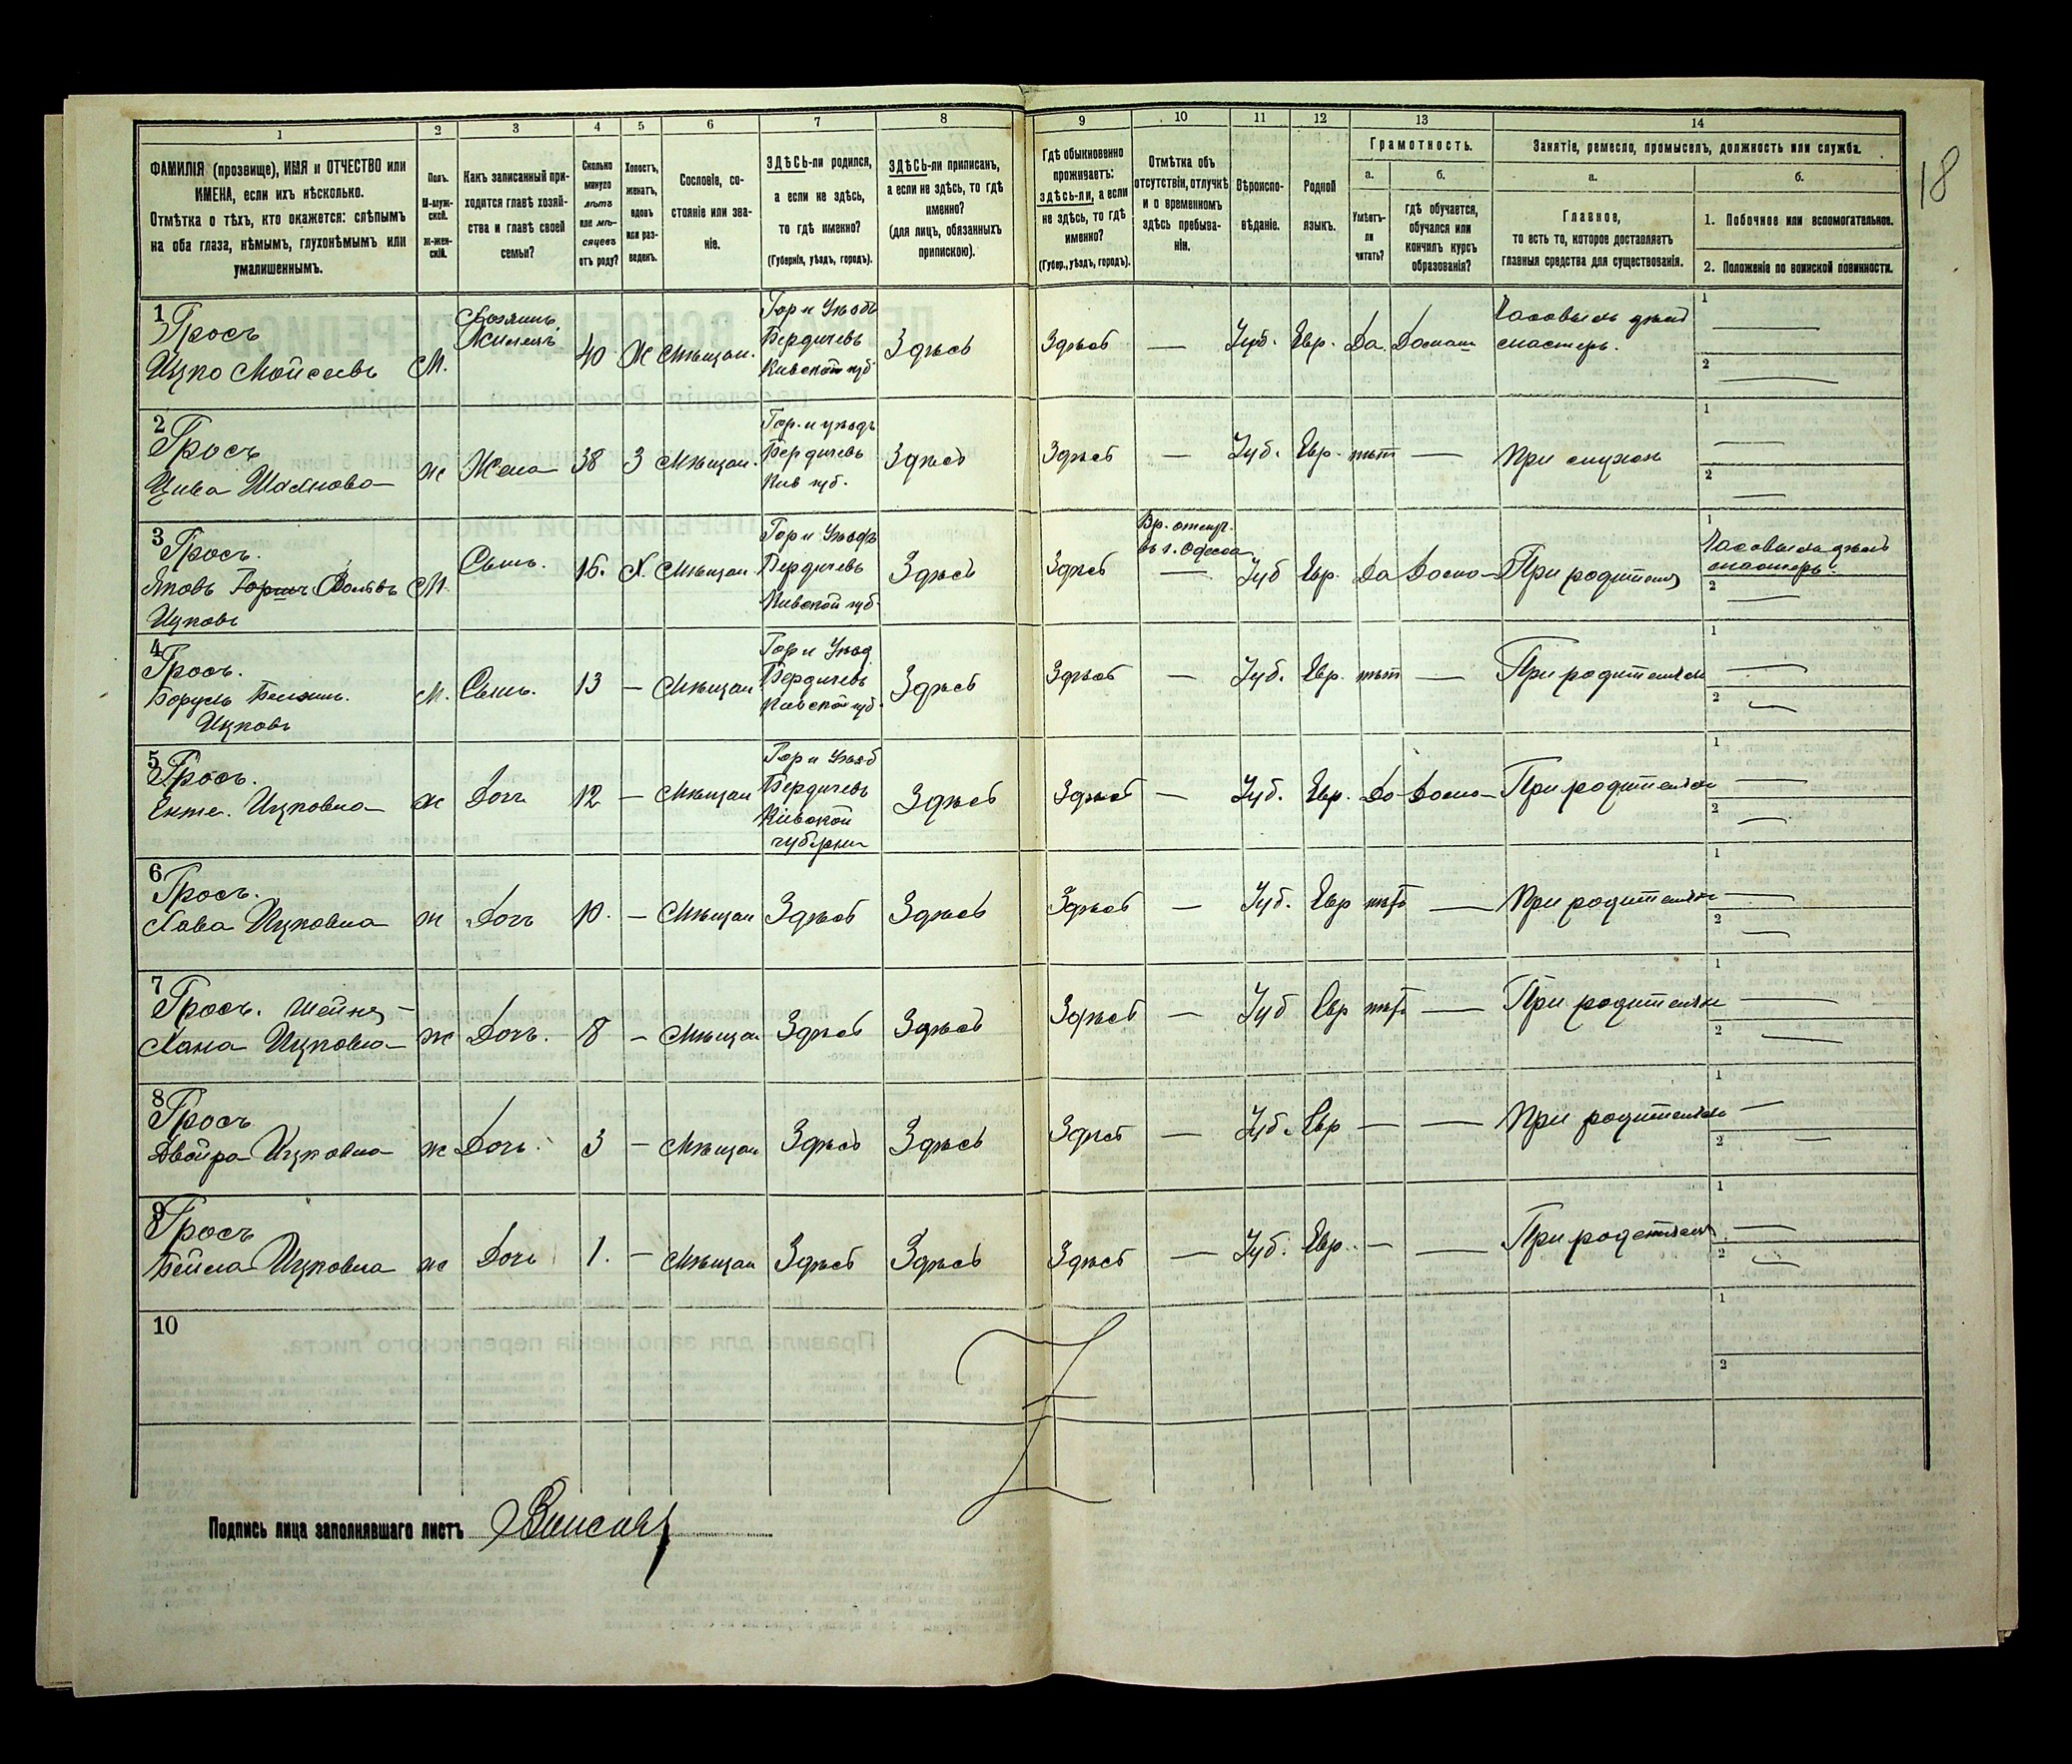 18
1 2 3 4 5 6 7 8 9 10 11 12 13 14
ФАМИЛІЯ (прозвище), ИМЯ и ОТЧЕСТВО или
ИМЕНА, если ихъ нѣсколько.
Отмѣтка о тѣхъ, кто окажется: слѣпымъ
на оба глаза, нѣмымъ, глухонѣмымъ или
умалишеннымъ.
Полъ.
М-муж-
ской.
Ж-жен-
скій.
Какъ записанный при-
ходится главѣ хозяй-
ства и главѣ своей
семьи?
Сколько
минуло
лѣтъ
или мѣ-
сяцевъ
отъ роду?
Холостъ,
женатъ,
вдовъ
или раз-
веденъ.
Сословіе, со-
стояніе или зва-
ніе.
ЗДѢСЬ-ли родился,
а если не здѣсь,
то гдѣ именно?
(Губернія, уѣздъ, городъ).
ЗДѢСЬ-ли приписанъ,
а если не здѣсь, то гдѣ
именно?
(для лицъ, обязанныхъ
припискою).
Гдѣ обыкновенно
проживаетъ:
здѣсь-ли, а если
не здѣсь, то гдѣ
именно?
(Губер., уѣздъ, городъ).
Отмѣтка объ
отсутствіи, отлучкѣ
и о временномъ
здѣсь пребыва-
ніи.
Вѣроиспо-
вѣданіе.
Родной
языкъ.
Грамотность.
а.
Умѣетъ-
ли
читать?
б.
гдѣ обучается,
обучался или
кончилъ курсъ
образованія?
Занятіе, ремесло, промыселъ, должность или служба.
а.
Главное,
то есть то, которое доставляетъ
главныя средства для существованія.
б.
1. Побочное или вспомогательное.
2. Положеніе по воинской повинности.
1
Гросъ
Ицко Мойсеевъ
М.
Хозяинъ
Жилецъ
40
Ж
Мѣщан.
Гор и Уѣздъ
Бердичевъ
Кивской губ
Здѣсь
Здѣсь
—
Іуд.
Евр.
Да.
Домаш
Часовыхъ дѣлъ
мастеръ.
1 —
2 —
2
Гросъ
Цива
ж
Жена
38
З
Мѣщан.
Гор. и уѣздъ
Бердичевъ
Кив губ.
Здѣсь
Здѣсь
—
Іуд.
Евр.
нѣт
—
При мужѣ
1 —
2 —
3
Гросъ.
Яковъ Вольвъ
Ицковъ
М.
Сынъ.
16.
Х.
Мѣщан
Гор и Уѣздъ
Бердичевъ
Кивской губ
Здѣсь
Здѣсь
Вр. отлуч.
въ г. Одесса
—
Іуд
Евр.
Да
Домо
При родител
1 Часовыхъ дѣлъ
мастеръ.
2 —
4
Гросъ.
Борухъ
Ицковъ
М.
Сынъ.
13
—
Мѣщан
Гор и Уѣзд
Бердичевъ
Кивской губ.
Здѣсь
Здѣсь
—
Іуд.
Евр.
нѣт
—
При родителях
1 —
2 —
5
Гросъ.
Енте. Ицковна
ж
Доч
12
—
Мѣщан
Гор и Уѣзд
Бердичевъ
Кивской
губерни
Здѣсь
Здѣсь
—
Іуд.
Евр.
До
Домо
При родителях
1 —
2 —
6
Гросъ.
Хава Ицковна
ж
Дочъ
10.
—
Мѣщан
Здѣсь
Здѣсь
Здѣсь
—
Іуд.
Евр
нѣт
—
При родителях
1 —
2 —
7
Гросъ. Шейня
Хана Ицковна
ж
Дочъ.
8
—
Мѣщан
Здѣсь
Здѣсь
Здѣсь
—
Іуд
Евр
нѣт
—
При родителях
1 —
2 —
8
Гросъ
Двойра Ицковна
ж
Дочъ.
3
—
Мѣщан
Здѣсь
Здѣсь
Здѣсь
—
Іуд.
Евр
—
—
При родителях
1 —
2 —
9
Гросъ
Бейла Ицковна
ж
Доч
1.
—
Мѣщан
Здѣсь
Здѣсь
Здѣсь
—
Іуд.
Евр.
—
—
При родетлях
1 —
2 —
10
1
2
Подпись лица заполнявшаго листъ